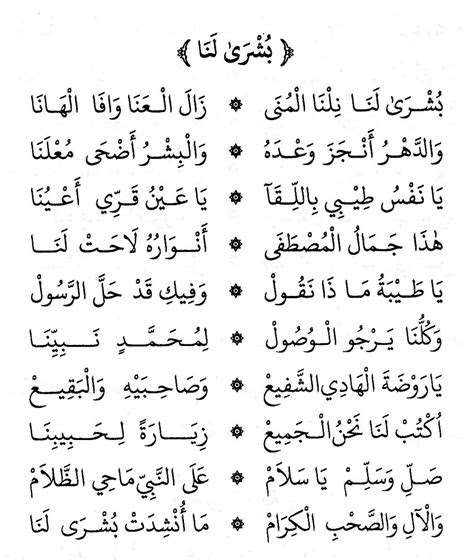 ﴿ بُشْرَىٰ لَنَا ﴾
بُشْرَىٰ لَنَا نِلْنَا الْمُنَى ۞ زَالَ الْعَنَا وَافَا الْهَانَا
وَالدَّهْرُ أَنْجَزَ وَعْدَهُ ۞ وَالْبِشْرُ أَضْحَى مُعْلَنَا
يَا نَفْسُ طِيْبِي بِاللِّقَآ ۞ يَا عَيْنُ قَرِّي أَعْيُنَا
هٰذَا جَمَالُ الْمُصْطَفَى ۞ أَنْوَارُهُ لَاحَتْ لَنَا
يَا طَيْبَةُ مَا ذَا نَقُولْ ۞ وَفِيكِ قَدْ حَلَّ الرَّسُولْ
وَكُلُّنَا يَرْجُو الْوُصُولْ ۞ لِمُحَمَّدٍ نَبِيِّنَا
يَا رَوْضَةَ الْهَادِي الشَّفِيعْ ۞ وَصَاحِبَيْهِ وَالْبَقِيعْ
اُكْتُبْ لَنَا نَحْنُ الْجَمِيعْ ۞ زِيَارَةً لِحَبِيبِنَا
صَلِّ وَسَلِّمْ يَا سَلَامْ ۞ عَلَى النَّبِيِّ مَاحِي الظَّلَامْ
وَالْآلِ وَالصَّحْبِ الْكِرَامْ ۞ مَا أُنْشِدَتْ بُشْرَى لَنَا